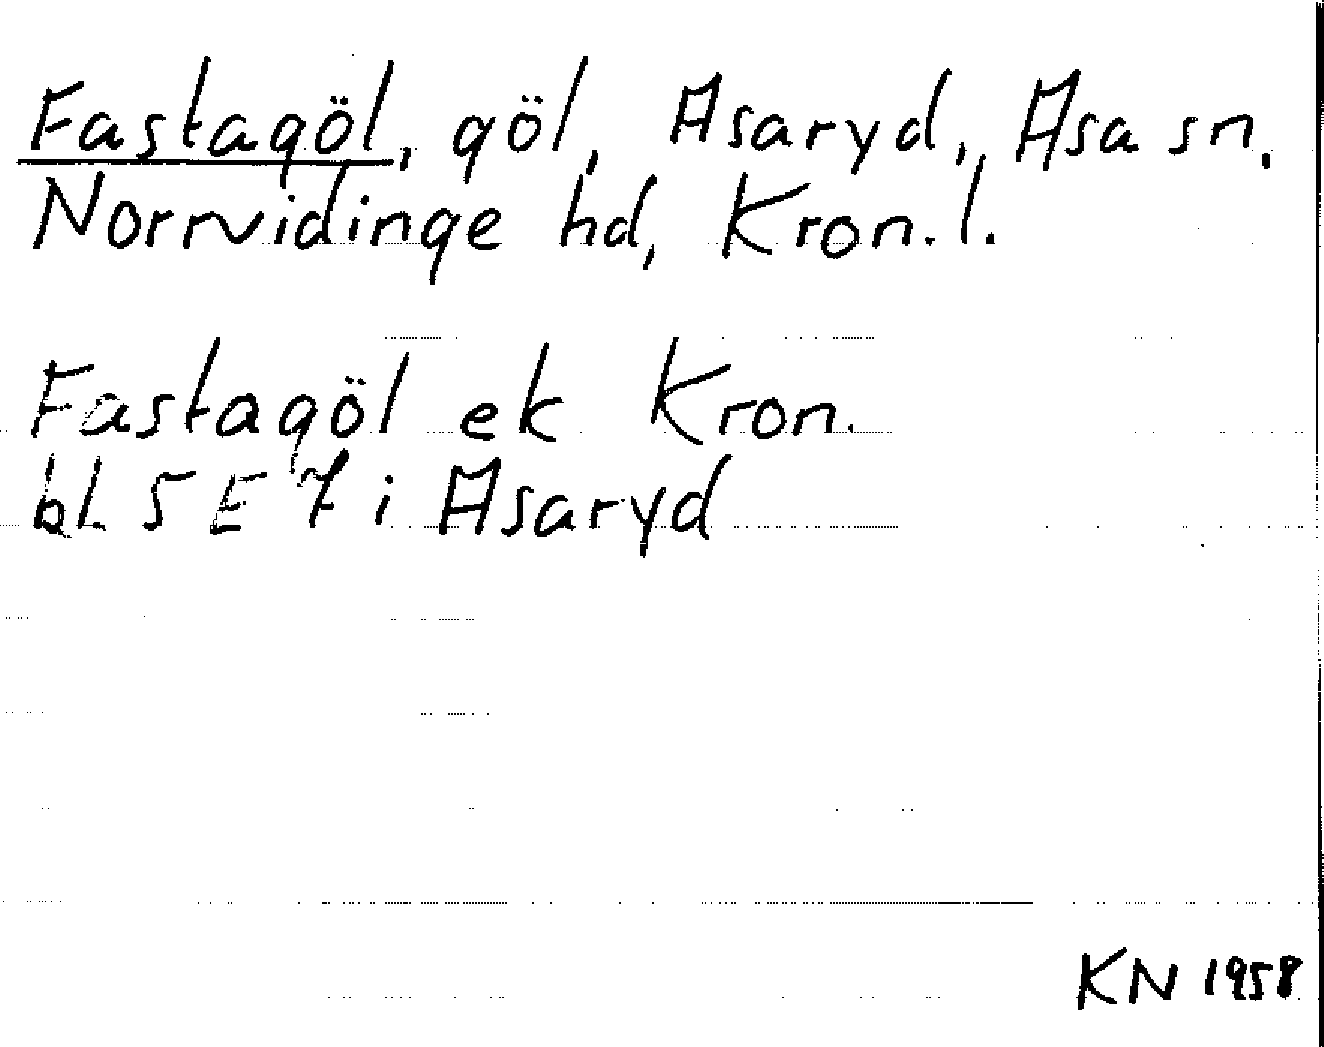 Fastagöl, göl, Asaryd, Asa sn.
Norrvidinge hd, Kron. l.
Fastagöl ek Kron.
bl. 5 E 7 i Asaryd
KN 1958